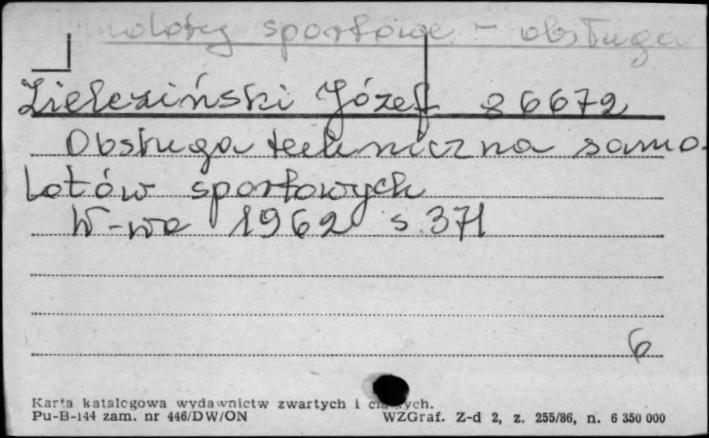 samoloty sportowe - obsługa
Zieleziński Józef 86672
Obsługa techniczna samo-
lotów sportowych
W-wa 1962 s. 371
6
Karta katalogowa wydawnictw zwartych i ciągłych.
Pu-B-144 zam. nr 446/DW/ON WZGraf. Z-d 2, z. 255/86, n. 6 350 000